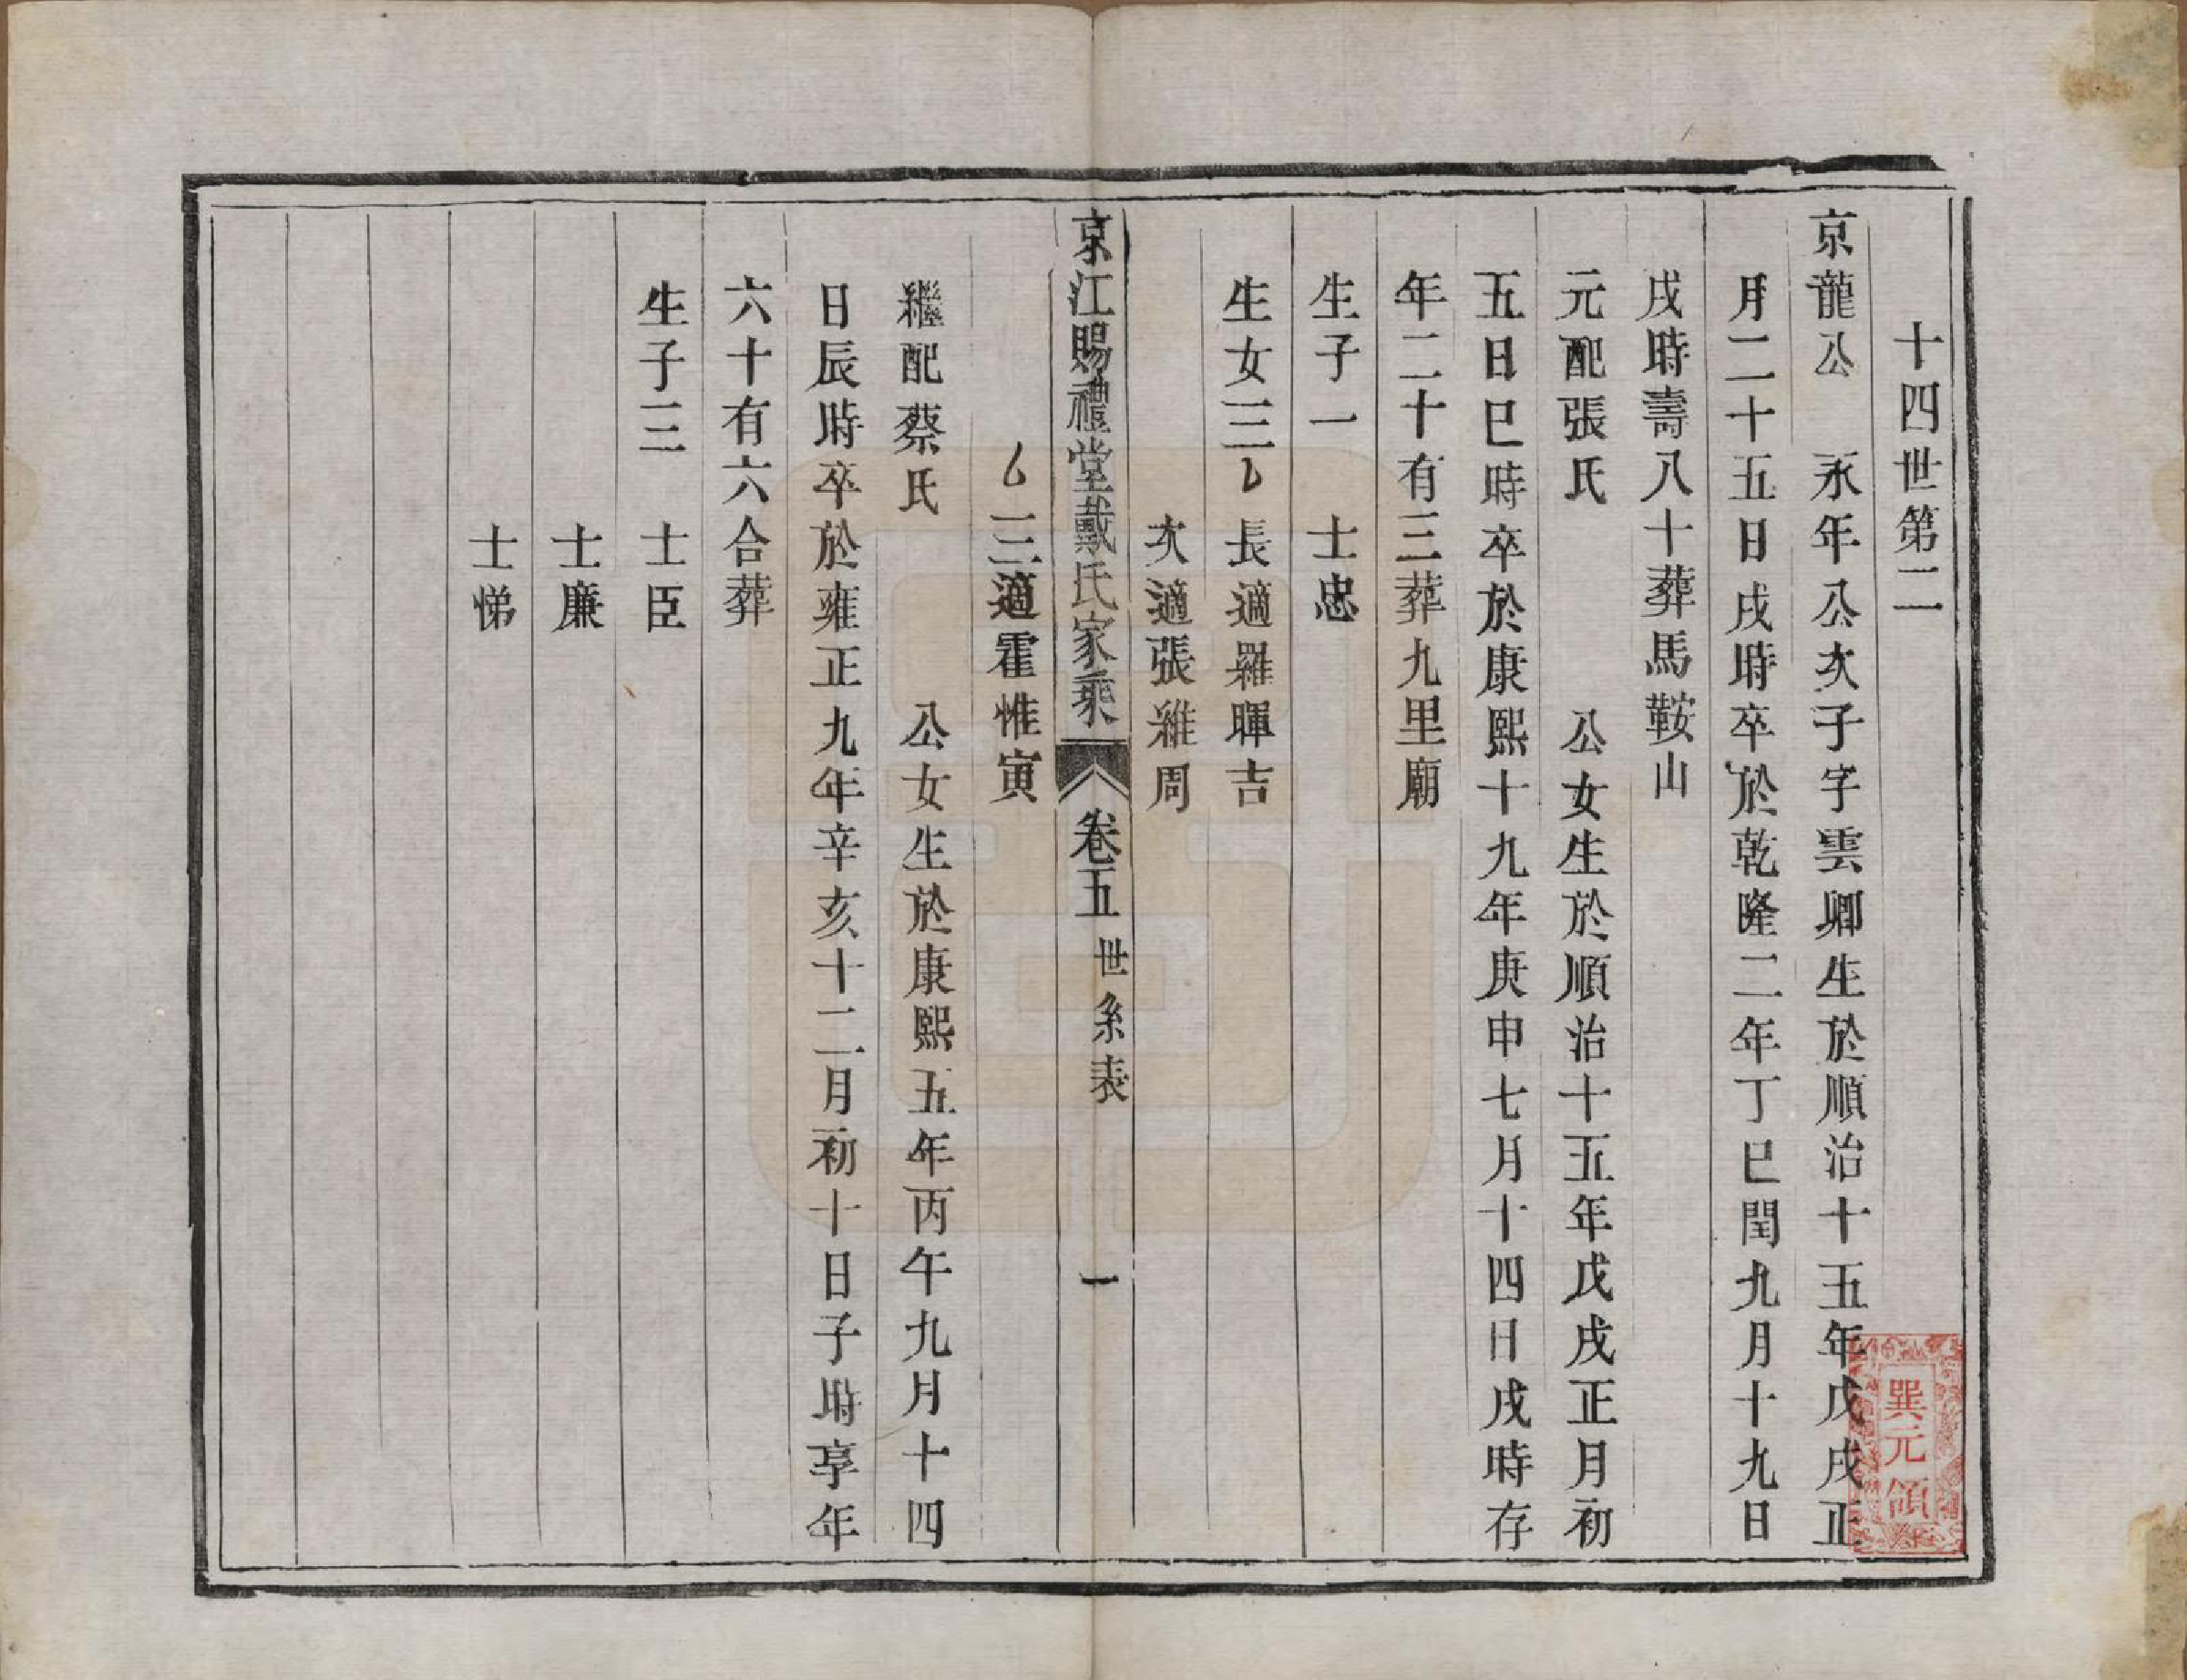 十四世第二
京龍公　永年公次子字雲卿生於順治十五年戊戌正
月二十五日戌時卒於乾隆二年丁巳閏九月十九日
戌時壽八十葬馬鞍山
元配張氏　公女生於順治十五年戊戌正月初
五日巳時卒於康熙十九年庚申七月十四日戌時存
年二十有三葬九里廟
生子一　士忠
生女三　長適羅暉吉
次適張維周
京江賜禮堂戴氏家乘　卷五　世系表　一
三適霍惟寅
繼配蔡氏　公女生於康熙五年丙午九月十四
日辰時卒於雍正九年辛亥十二月初十日子時享年
六十有六合葬
生子三　士臣
士廉
士悌
巽元領